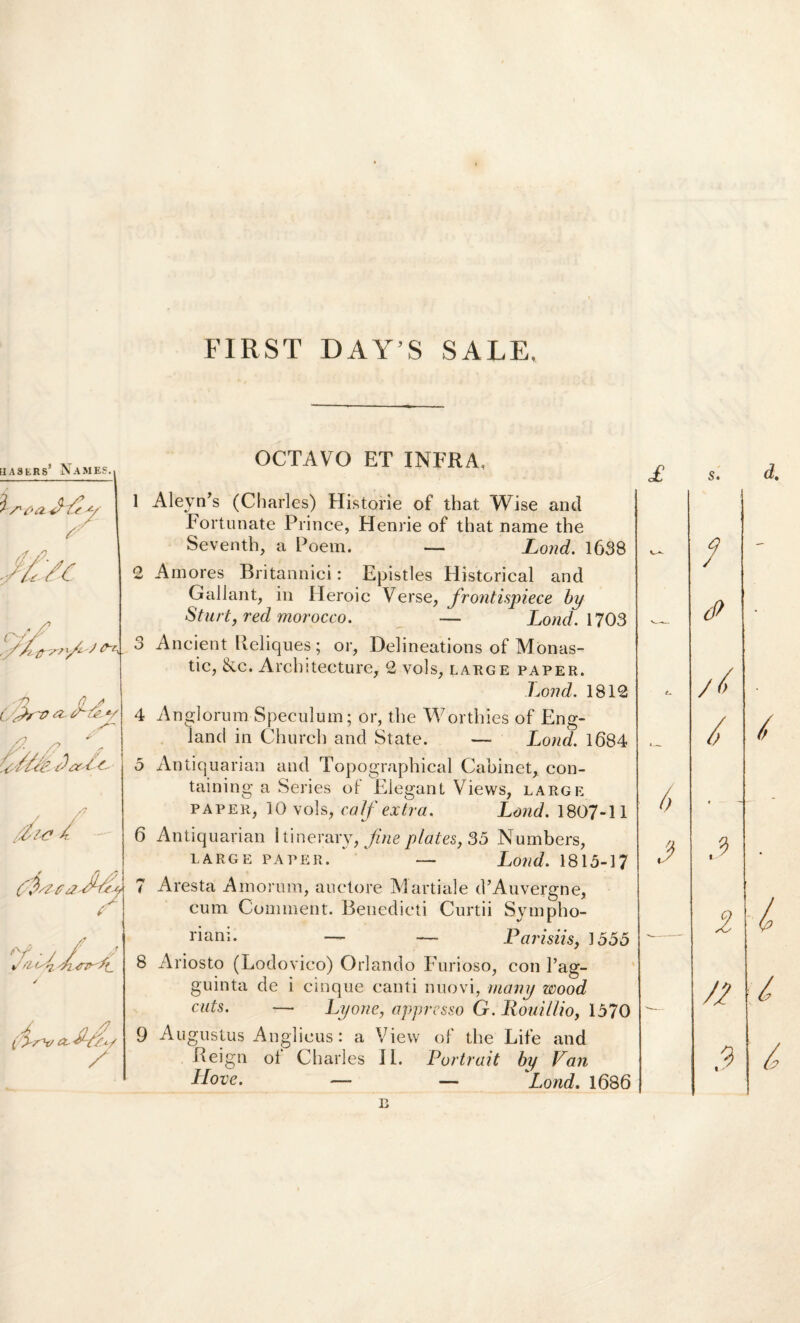 FIRST DAY'S SALE.
HASERS' NAMES.
OCTAVO ET INFRA.
£ s. d.
1 Aleyn's (Charles) Historie of that Wise and
Fortunate Prince, Henrie of that name the
Seventh, a Poem. — Lond. 1638
7
2 Amores Britannici: Epistles Historical and
Gallant, in Heroic Verse, frontispiece by
Sturt, red morocco. — Lond. 1703
3 Ancient Reliques; or, Delineations of Monas-
tic, &c. Architecture, 2 vols, LARGE PAPER.
Lond. 1812
16
4 Anglorum Speculum; or, the Worthies of Eng-
land in Church and State. — Lond. 1684
6 6
5 Antiquarian and Topographical Cabinet, con-
taining a Series of Elegant Views, LARGE
PAPER, 10 vols, calf extra. Lond. 1807-11
6
6 Antiquarian Itinerary, fine plates, 35 Numbers,
LARGE PAPER. — Lond. 1815-17
3 3
7 Aresta Amorum, auctore Martiale d'Auvergne,
cum Comment. Benedicti Curtii Sympho-
riani. — — Parisiis, 1555
2 6
8 Ariosto (Lodovico) Orlando Furioso, con l'ag-
guinta de i cinque canti nuovi, many wood
cuts. — Lyone, appresso G. Rouillio, 1570
12 6
9 Augustus Anglicus: a View of the Life and
Reign of Charles II. Portrait by Van
Hove. — — Lond. 1686
3 6
B